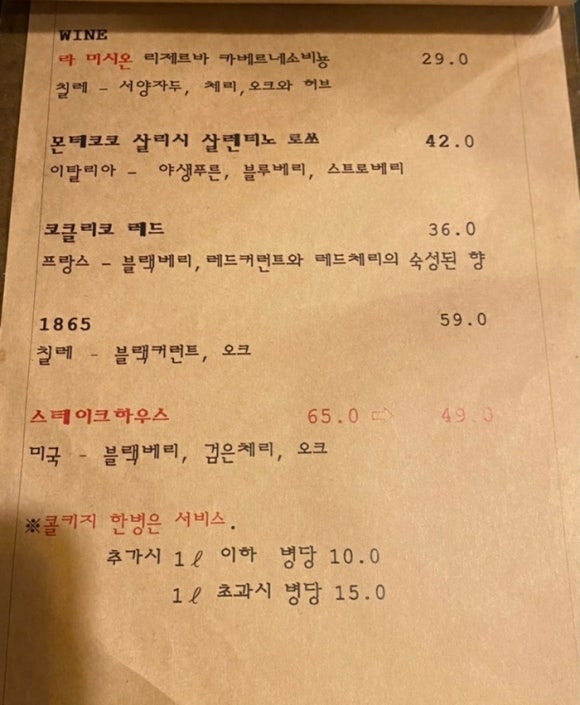 WINE
라 미시온 리제르바 카베르네소비뇽 29.0
칠레 - 서양자두, 체리,오크와 허브
몬테코코 살리시 살렌티노 로쏘 42.0
이탈리아 - 야생푸른, 블루베리, 스트로베리
코클리코 레드 36.0
프랑스 - 블랙베리,레드커런트와 레드체리의 숙성된 향
1865 59.0
칠레 - 블랙커런트, 오크
스테이크하우스 65.0 ⇨ 49.0
미국 - 블랙베리, 검은체리, 오크
※콜키지 한병은 서비스.
추가시 1ℓ 이하 병당 10.0
1ℓ 초과시 병당 15.0